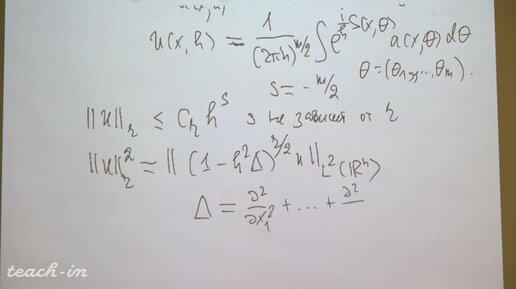 u(x,h) = 1/(2πh)^{m/2} ∫ e^{i/h S(x,θ)} a(x,θ) dθ
θ = (θ₁,...,θₘ).
s = - m/2
‖u‖_r ≤ C_r h^s s не зависит от r
‖u‖²_r = ‖ (1 - h²Δ)^{r/2} u ‖_{L²(ℝⁿ)}
Δ = ∂²/∂x₁² + ... + ∂²/
teach-in